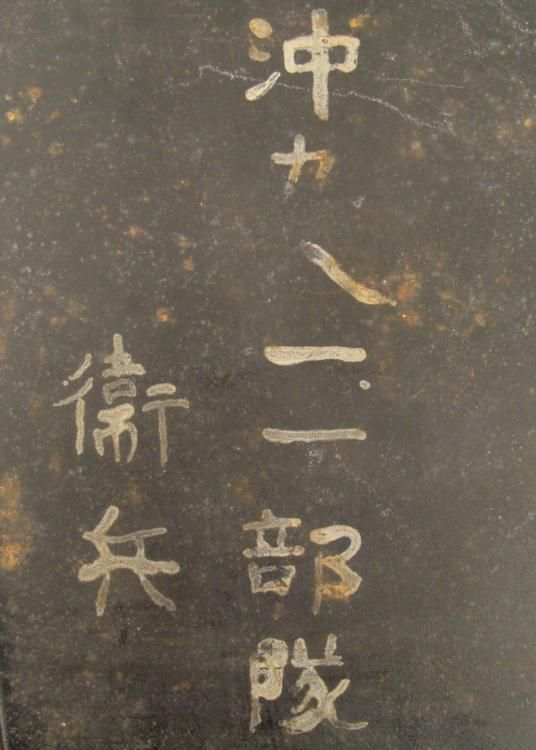 沖九八一一部隊
衛兵